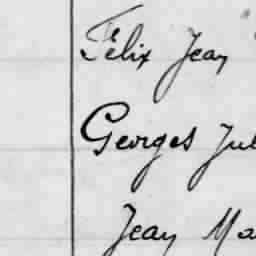 Félix Jean
Georges Jul
Jean Ma